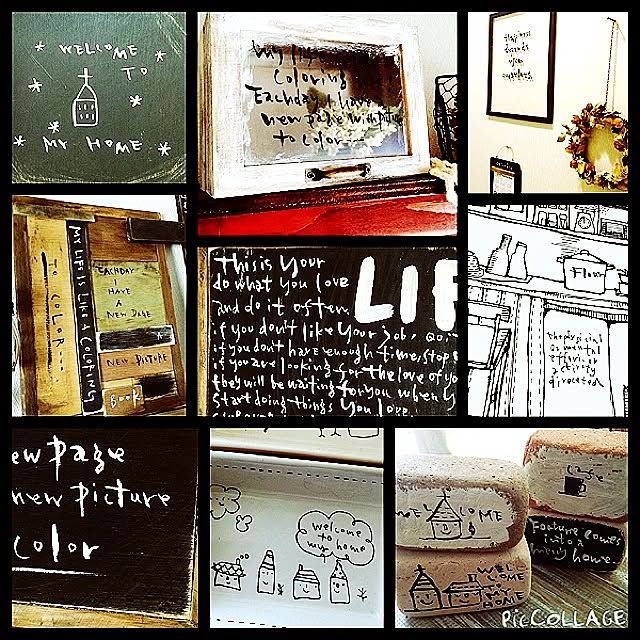 WELCOME
TO
MY HOME
my life
Coloring
Eachday I have
new page with picture
to color...
Happiness
depends
upon
ourselves.
TO COLOR...
MY LIFE IS LIKE A COLORING
EACHDAY
I
HAVE
A
NEW PAGE
NEW PICTURE
BOOK
This is Your
LIF
do what you love
and do it often.
if you don't like Your job, qu
if you don't have enough time, stop
if you are looking for the love of yo
they will be waiting for you when y
start doing things you love.
Flour
the physical
or mental
effort or
activity
directed
ew page
new picture
color
welcome
to
my home
WELCOME
WELL
COME
MY
HOME
Cafe
Fortune comes
into a
merry home.
PicCOLLAGE